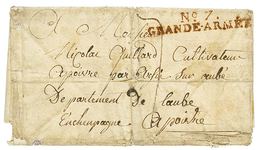 No 7.
GRANDE-ARMÉE
A Monsieur
Nicolas Guillard Cultivateur
Apoivre par Arsis sur aube
Departement de laube
Enchenpagne Apoivre